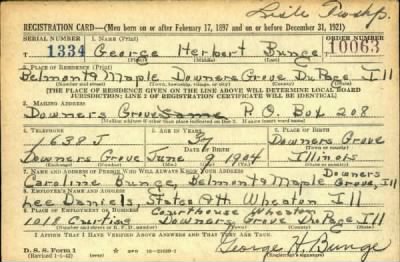 Lisle Twshp.
REGISTRATION CARD—(Men born on or after February 17, 1897 and on or before December 31, 1921)
SERIAL NUMBER 1. NAME (Print) ORDER NUMBER
1334 George Herbert Bunge 10063
(First) (Middle) (Last)
2. PLACE OF RESIDENCE (Print)
Belmont & Maple Downers Grove DuPage Ill
[THE PLACE OF RESIDENCE GIVEN ON THE LINE ABOVE WILL DETERMINE LOCAL BOARD
JURISDICTION; LINE 2 OF REGISTRATION CERTIFICATE WILL BE IDENTICAL]
3. MAILING ADDRESS
Downers Grove Same P.O. Box 208
4. TELEPHONE 5. AGE IN YEARS 6. PLACE OF BIRTH
638 J 37 Downers Grove
DATE OF BIRTH
Downers Grove June 9 1904 Illinois
7. NAME AND ADDRESS OF PERSON WHO WILL ALWAYS KNOW YOUR ADDRESS Downers
Caroline Bunge, Belmont & Maple Grove, Ill
8. EMPLOYER'S NAME AND ADDRESS
Lee Daniels, States Att Wheaton Ill
9. PLACE OF EMPLOYMENT OR BUSINESS Courthouse Wheaton
1018 Curtiss Downers Grove DuPage Ill
I AFFIRM THAT I HAVE VERIFIED ABOVE ANSWERS AND THAT THEY ARE TRUE.
D. S. S. Form 1
(Revised 1-1-42)
George H. Bunge